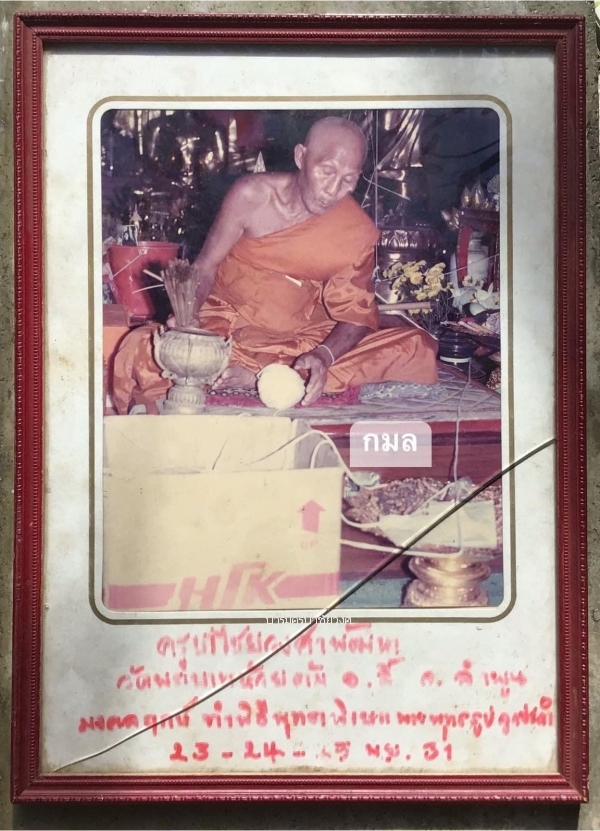 กมล
UP
HTK
บารมีครูบาชัยวงศ์
ครูบาไชยวงศาพัฒนา
วัดพระบาทห้วยต้ม อ.ลี้ จ.ลำพูน
มงคลฤกษ์ ทำพิธีพุทธาภิเษก พระพุทธรูป
23 - 24 - 25 พ.ย. 31